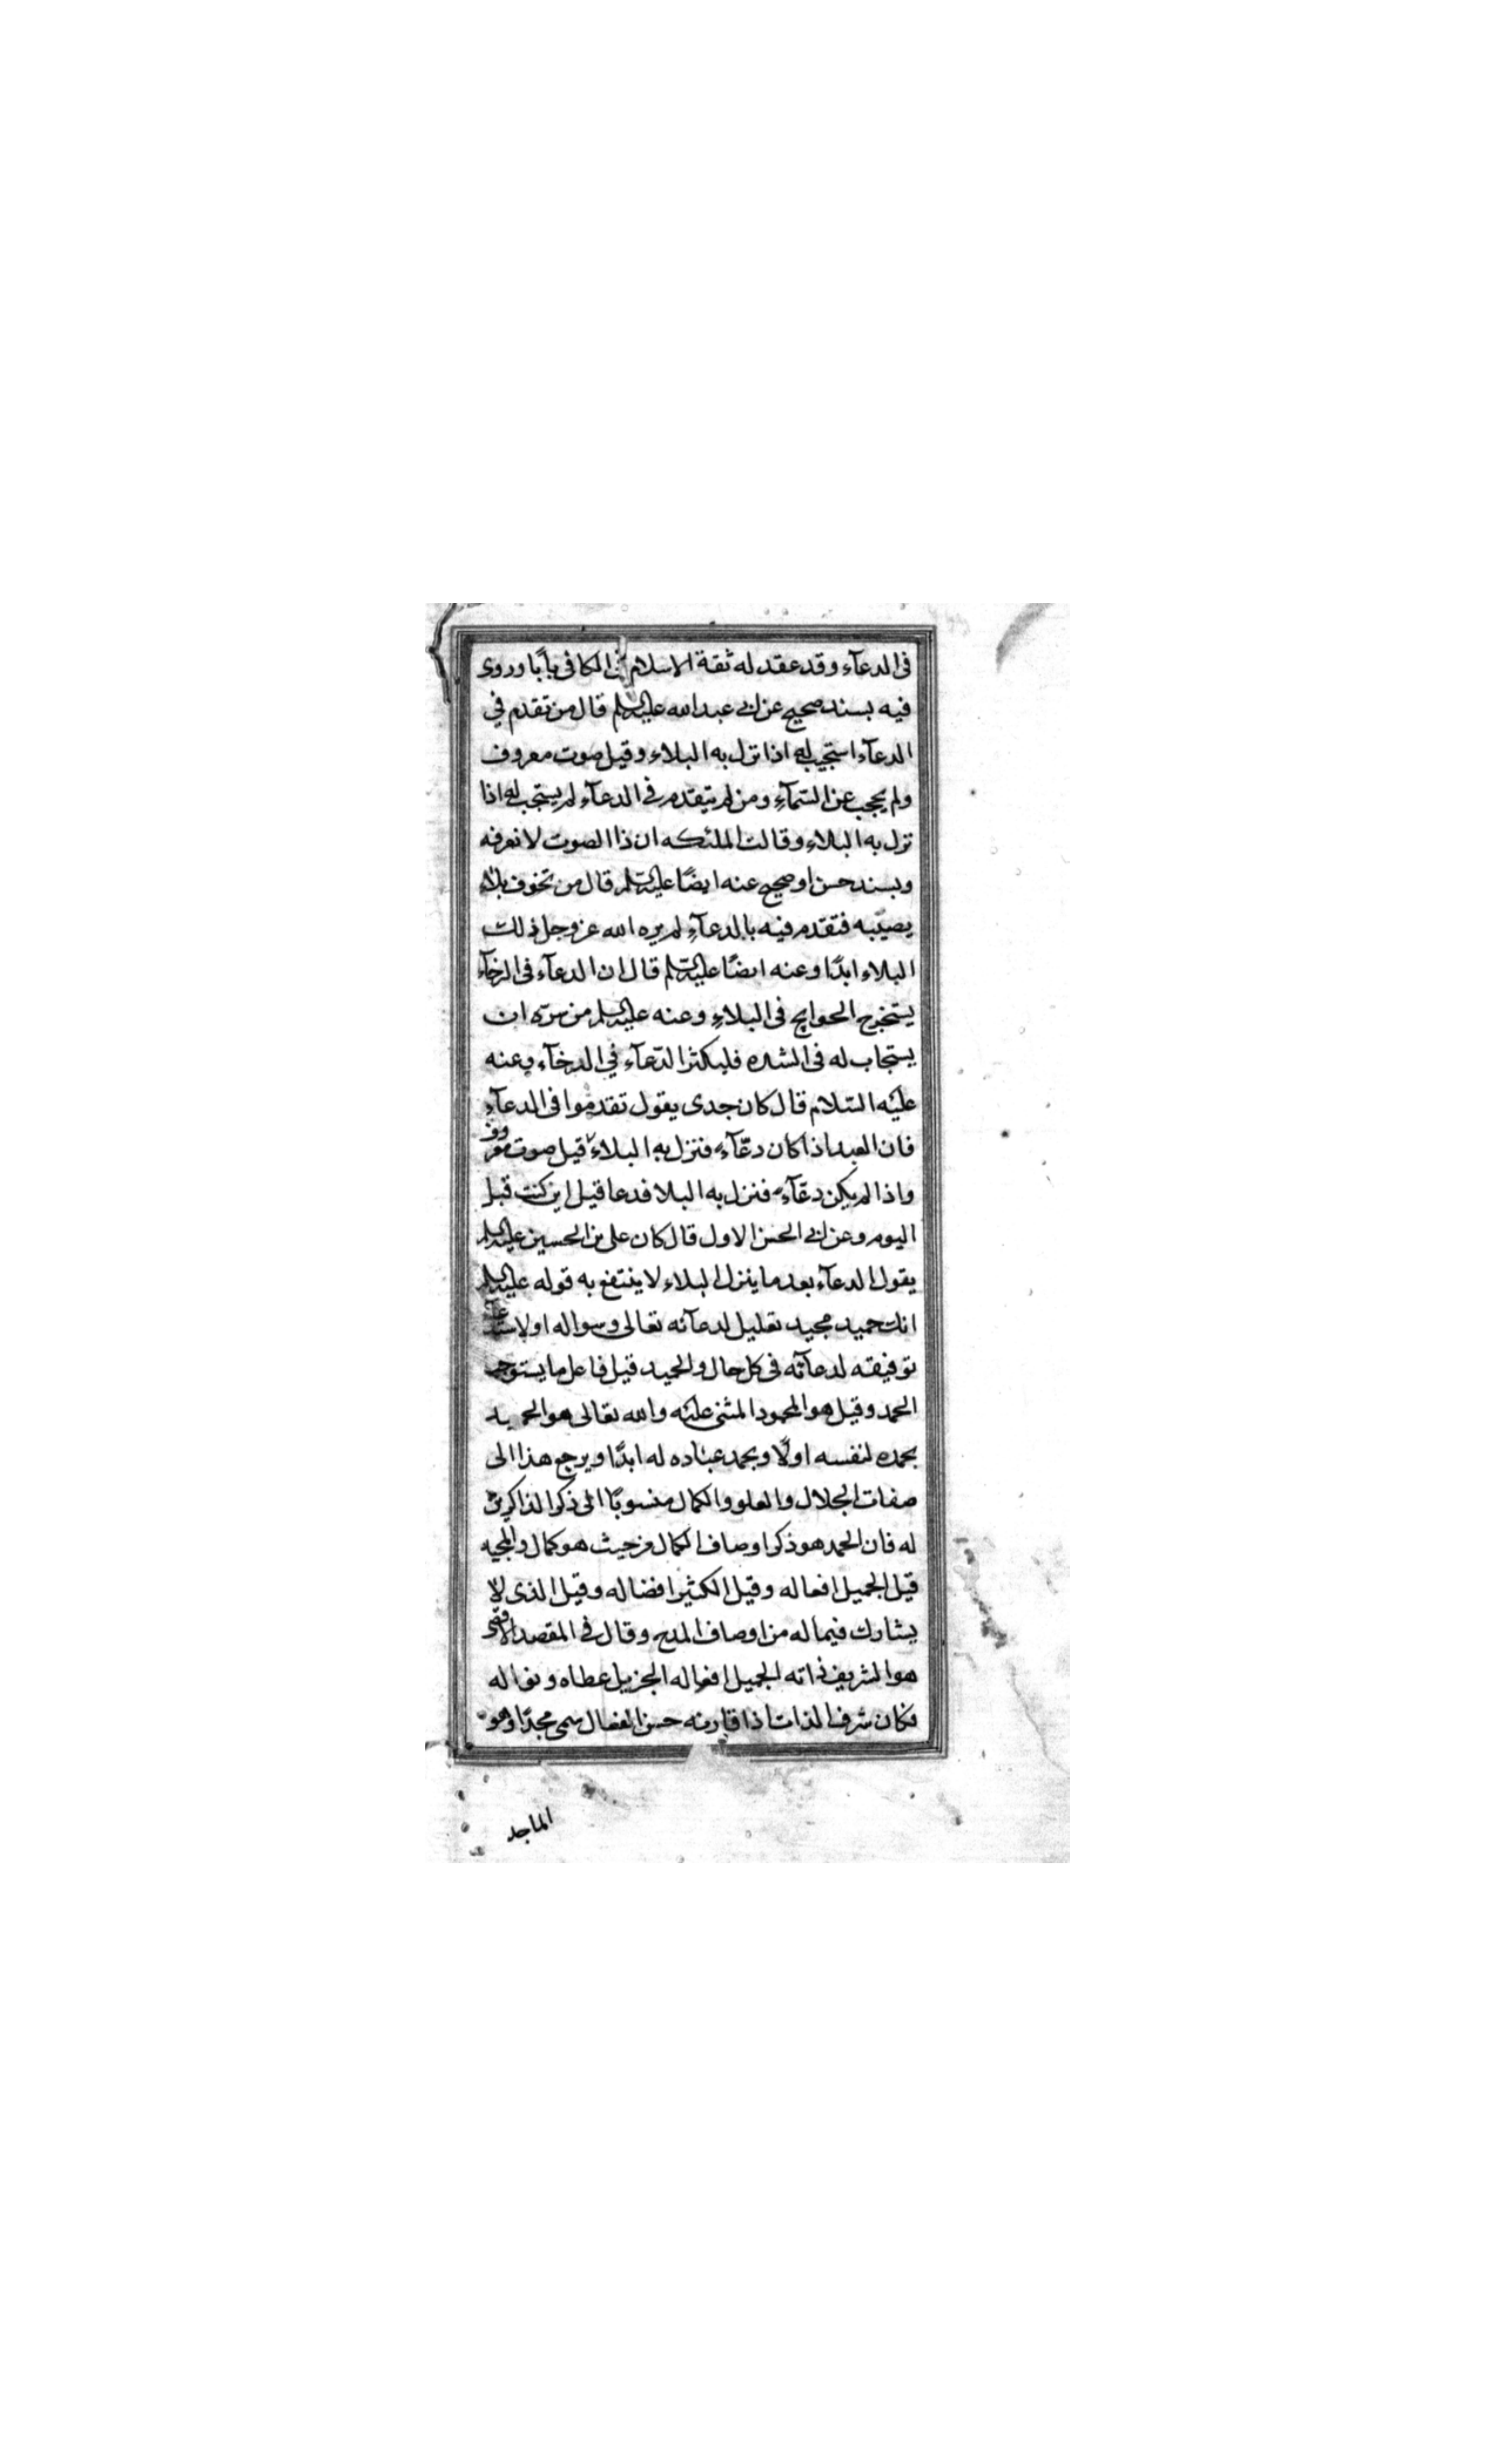 فى الدعآء وقد عقد له ثقة الاسلام فى الكافى بابًا وروى
فيه بسند صحيح عن ابى عبد الله عليه السلم قال من تقدم في
الدعآء استجيب له اذا نزل به البلاء وقيل صوت معروف
ولم يحجب عن السّمآءِ ومن لم يتقدم فى الدعآء لم يستجب له اذا
نزل به البلاءِ وقالت الملئكه ان ذا الصوت لا نعرفه
وبسند حسن او صحيح عنه ايضًا عليه السّلم قال من تخوف بلاء
يصيبه فتقدم فيه بالدعآءِ لم يره الله عز وجل ذلك
البلاء ابدًا وعنه ايضًا عليه السّلم قال ان الدعآء فى الرخآء
يستخرج الحوايج فى البلاءِ وعنه عليه السلم من سرّه ان
يستجاب له فى الشده فليكثر الدّعآء في الرخآء وعنه
عليْه السّلام قال كان جدى يقول تقدموا فى الدعآءِ
فان العبد اذا كان دعّآء فنزل به البلاء قيل صوت معروف
واذا لم يكن دعّآء فنزل به البلا فدعا قيل اين كنت قبل
اليوم وعن ابى الحسن الاول قال كان على بن الحسين عليه السلم
يقول الدعآء بعد ما ينزل البلاء لا ينتفع به قوله عليه السلم
انك حميد مجيد تعليل لدعآئه تعالى وسواله اولاستدعآء
توفيقه لدعآئه فى كل حال والحميد قيل فاعل ما يستوجب
الحمد وقيل هو المحمود المثنى عليْه والله تعالى هو الحميد
بحمده لنفسه اولًا وبحمد عباده له ابدًا ويرجع هذا الى
صفات الجلال والعلو والكمال منسوبًا الى ذكر الذاكرين
له فان الحمد هو ذكر اوصاف الكمال من حيث هو كمال والمجيد
قيل الجميل افعاله وقيل الكثير افضاله وقيل الذى لا
يشارك فيما له من اوصاف المدح وقال فى المقصد الاقصى
هو الشريف ذاته الجميل افعاله الجزيل عطاه ونواله
فكان شرف الذات اذا قارنه حسن الفعال سمى مجدًا وهو
الماجد